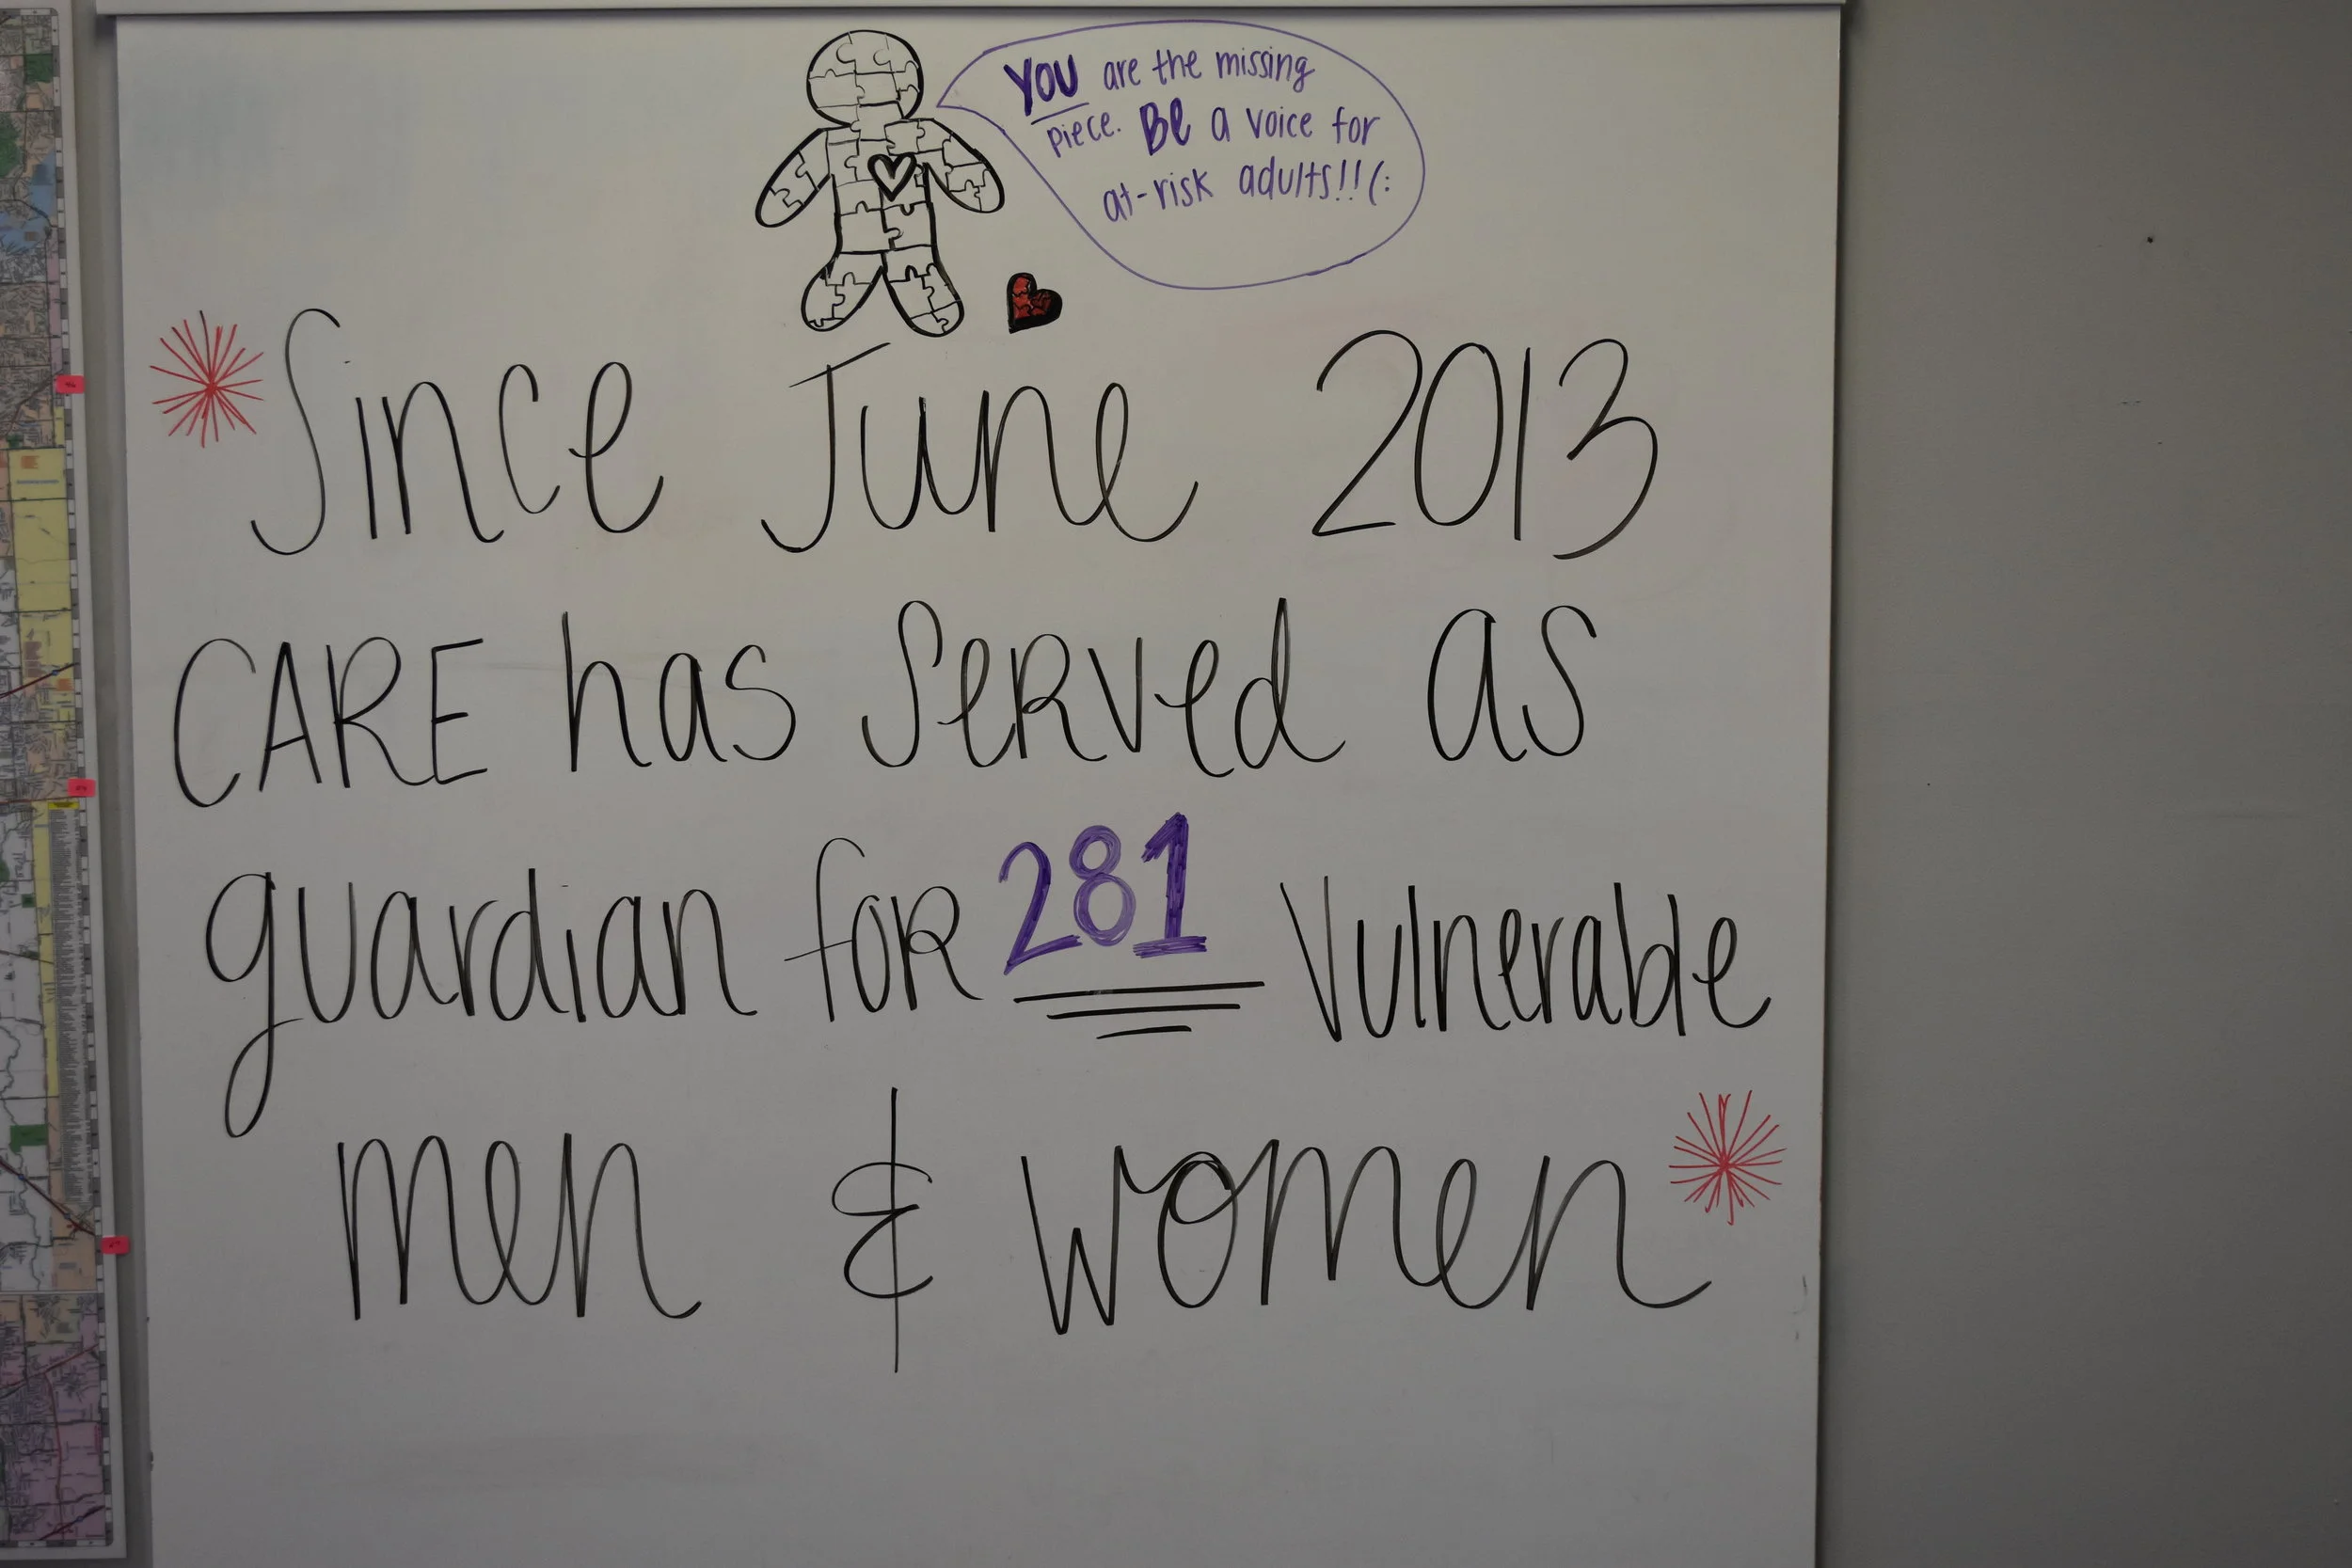 YOU are the missing
piece. Be a voice for
at-risk adults!!(:
Since June 2013
CARE has served as
guardian for 281 vulnerable
men & women